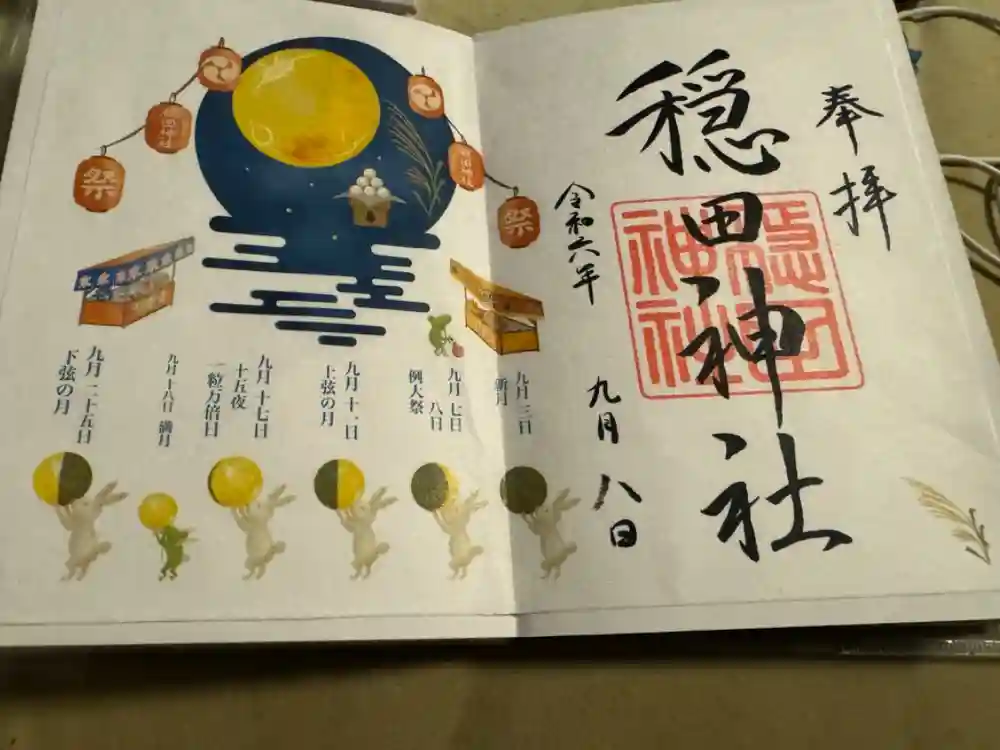 奉拝
穏田神社
穏田神社
令和六年
九月八日
祭
穏田神社
穏田神社
祭
九月三日
新月
九月七日
八日
例大祭
九月十一日
上弦の月
九月十七日
十五夜
一粒万倍日
九月十八日 満月
九月二十五日
下弦の月